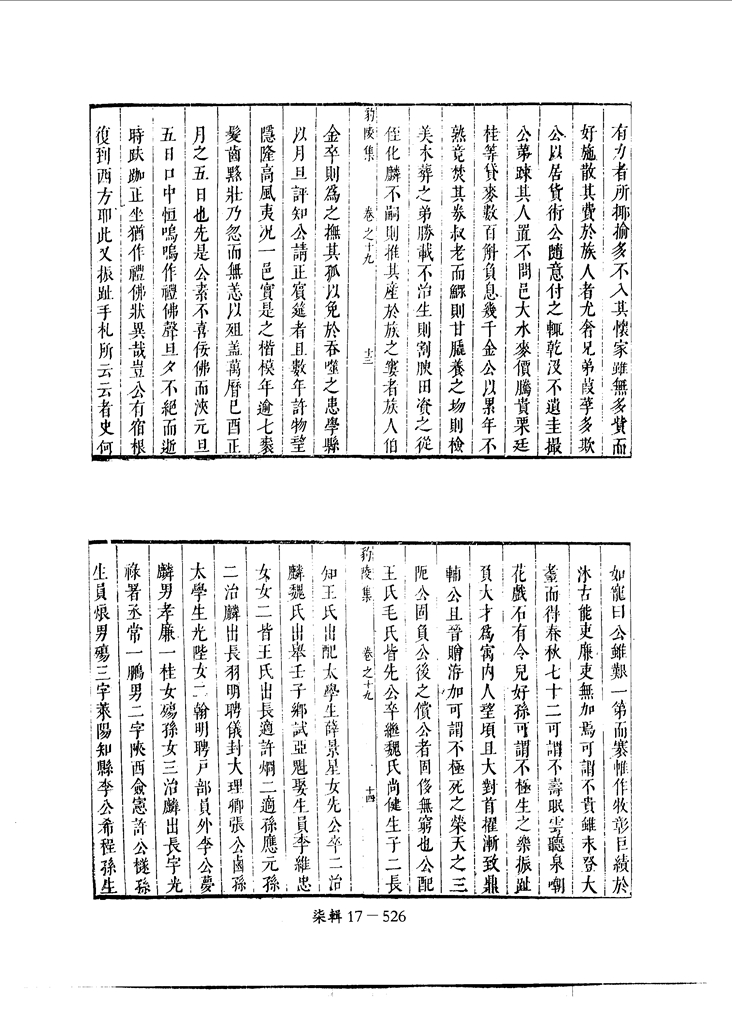 有力者所揶揄多不入其懷家雖無多貲而
好施散其費於族人者尤奢兄弟葭莩多欺
公以居貨術公隨意付之輒乾沒不遺圭撮
公第踈其人置不問邑大水麥價騰貴栗廷
桂等貸麥數百斛負息幾千金公以累年不
熟竟焚其券叔老而鰥則甘膬養之歾則檢
美木葬之弟勝載不治生則割腴田資之從
侄化麟不嗣則推其産於族之窶者族人伯
豹陵集 卷之十九 十三
金卒則爲之撫其孤以免於吞噬之患學縣
以月旦評知公請正賓筵者且數年許物望
隱隆高風夷况一邑實是之楷模年逾七袠
髮齒黟壯乃忽而無恙以殂盖萬曆巳酉正
月之五日也先是公素不喜佞佛而浹元旦
五日口中恒嗚嗚作禮佛聲旦夕不絕而逝
時趺跏正坐猶作禮佛狀異哉豈公有宿根
復到西方耶此又振趾手札所云云者史何
如寵曰公雖艱一第而褰帷作牧彰巨績於
沭古能吏廉吏無加焉可謂不貴雖未登大
耋而得春秋七十二可謂不壽眠雲聽泉嘲
花戲石有令兒好孫可謂不極生之樂振趾
負大才爲寓内人望頃且大對首擢漸致鼎
輔公且晉贈洊加可謂不極死之榮天之三
阨公固負公後之償公者固侈無窮也公配
王氏毛氏皆先公卒繼魏氏尚健生子二長
豹陵集 卷之十九 十四
知王氏出配太學生薛景星女先公卒二治
麟魏氏出舉壬子鄉試亞魁娶生員李維忠
女女二皆王氏出長適許炯二適孫應元孫
二治麟出長羽明聘儀封大理卿張公鹵孫
太學生光陛女二翰明聘戶部員外李公夢
麟男孝廉一桂女殤孫女三治麟出長字光
祿署丞常一鵬男二字陝西僉憲許公樾孫
生員㑽男殤三字萊陽知縣李公希程孫生
柒輯 17－526